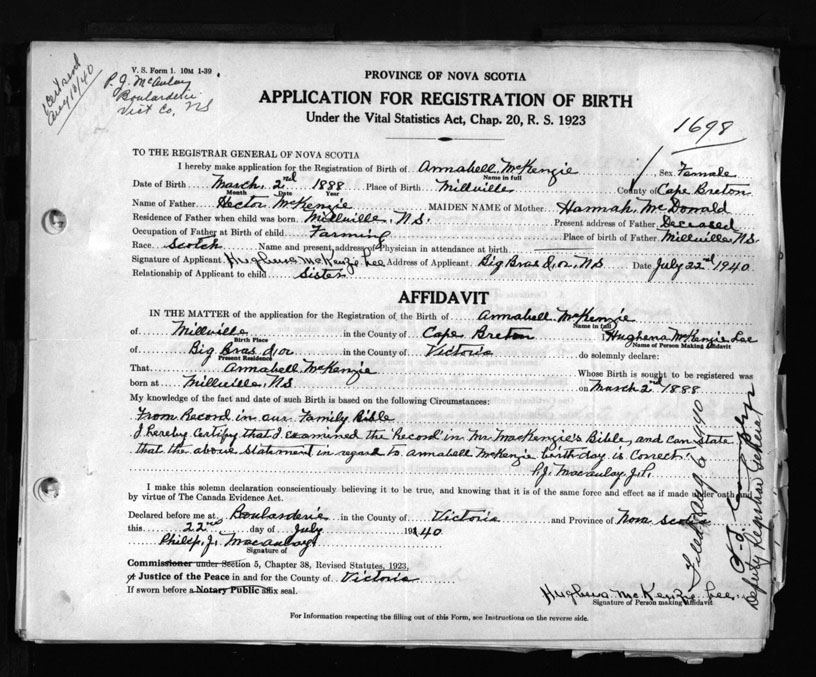 V. S. Form 1. 10M 1-39
P. J. McAulay
Boularderie
Vict Co, NS
Aug 10/40
PROVINCE OF NOVA SCOTIA
APPLICATION FOR REGISTRATION OF BIRTH
Under the Vital Statistics Act, Chap. 20, R. S. 1923
1698
TO THE REGISTRAR GENERAL OF NOVA SCOTIA
I hereby make application for the Registration of Birth of Annabell McKenzie Sex Female
Name in full
Date of Birth March 2nd 1888 Place of Birth Millville County of Cape Breton
Month Date Year
Name of Father Hector McKenzie MAIDEN NAME of Mother Hannah McDonald
Residence of Father when child was born Millville, N.S. Present address of Father Deceased
Occupation of Father at Birth of child Farming Place of birth of Father Millville NS
Race Scotch Name and present address of Physician in attendance at birth
Signature of Applicant Hughena McKenzie Lee Address of Applicant Big Bras d,or, NS Date July 22nd 1940
Relationship of Applicant to child Sister
AFFIDAVIT
IN THE MATTER of the application for the Registration of the Birth of Annabell McKenzie
Name in full
of Millville in the County of Cape Breton I, Hughena McKenzie Lee
Birth Place Name of Person Making Affidavit
of Big Bras d,or in the County of Victoria do solemnly declare:
Present Residence
That Annabell McKenzie Whose Birth is sought to be registered was
born at Millville, NS on March 2nd 1888
My knowledge of the fact and date of such Birth is based on the following Circumstances:
From Record in our Family Bible
I hereby certify that I examined the Record in Mr. MacKenzie's Bible, and can state
that the above statement in regard to Annabell McKenzie birthday is Correct.
P.J. Macaulay J.P.
I make this solemn declaration conscientiously believing it to be true, and knowing that it is of the same force and effect as if made under oath and
by virtue of The Canada Evidence Act.
Declared before me at Boularderie in the County of Victoria and Province of Nova Scotia
this 22nd day of July 1940
Philip J. Macaulay
Signature of
Commissioner under Section 5, Chapter 38, Revised Statutes, 1923,
A Justice of the Peace in and for the County of Victoria
If sworn before a Notary Public affix seal.
Hughena McKenzie Lee
Signature of Person making Affidavit
For Information respecting the filling out of this Form, see Instructions on the reverse side.
Filed Aug 6 1940
Deputy Registrar General